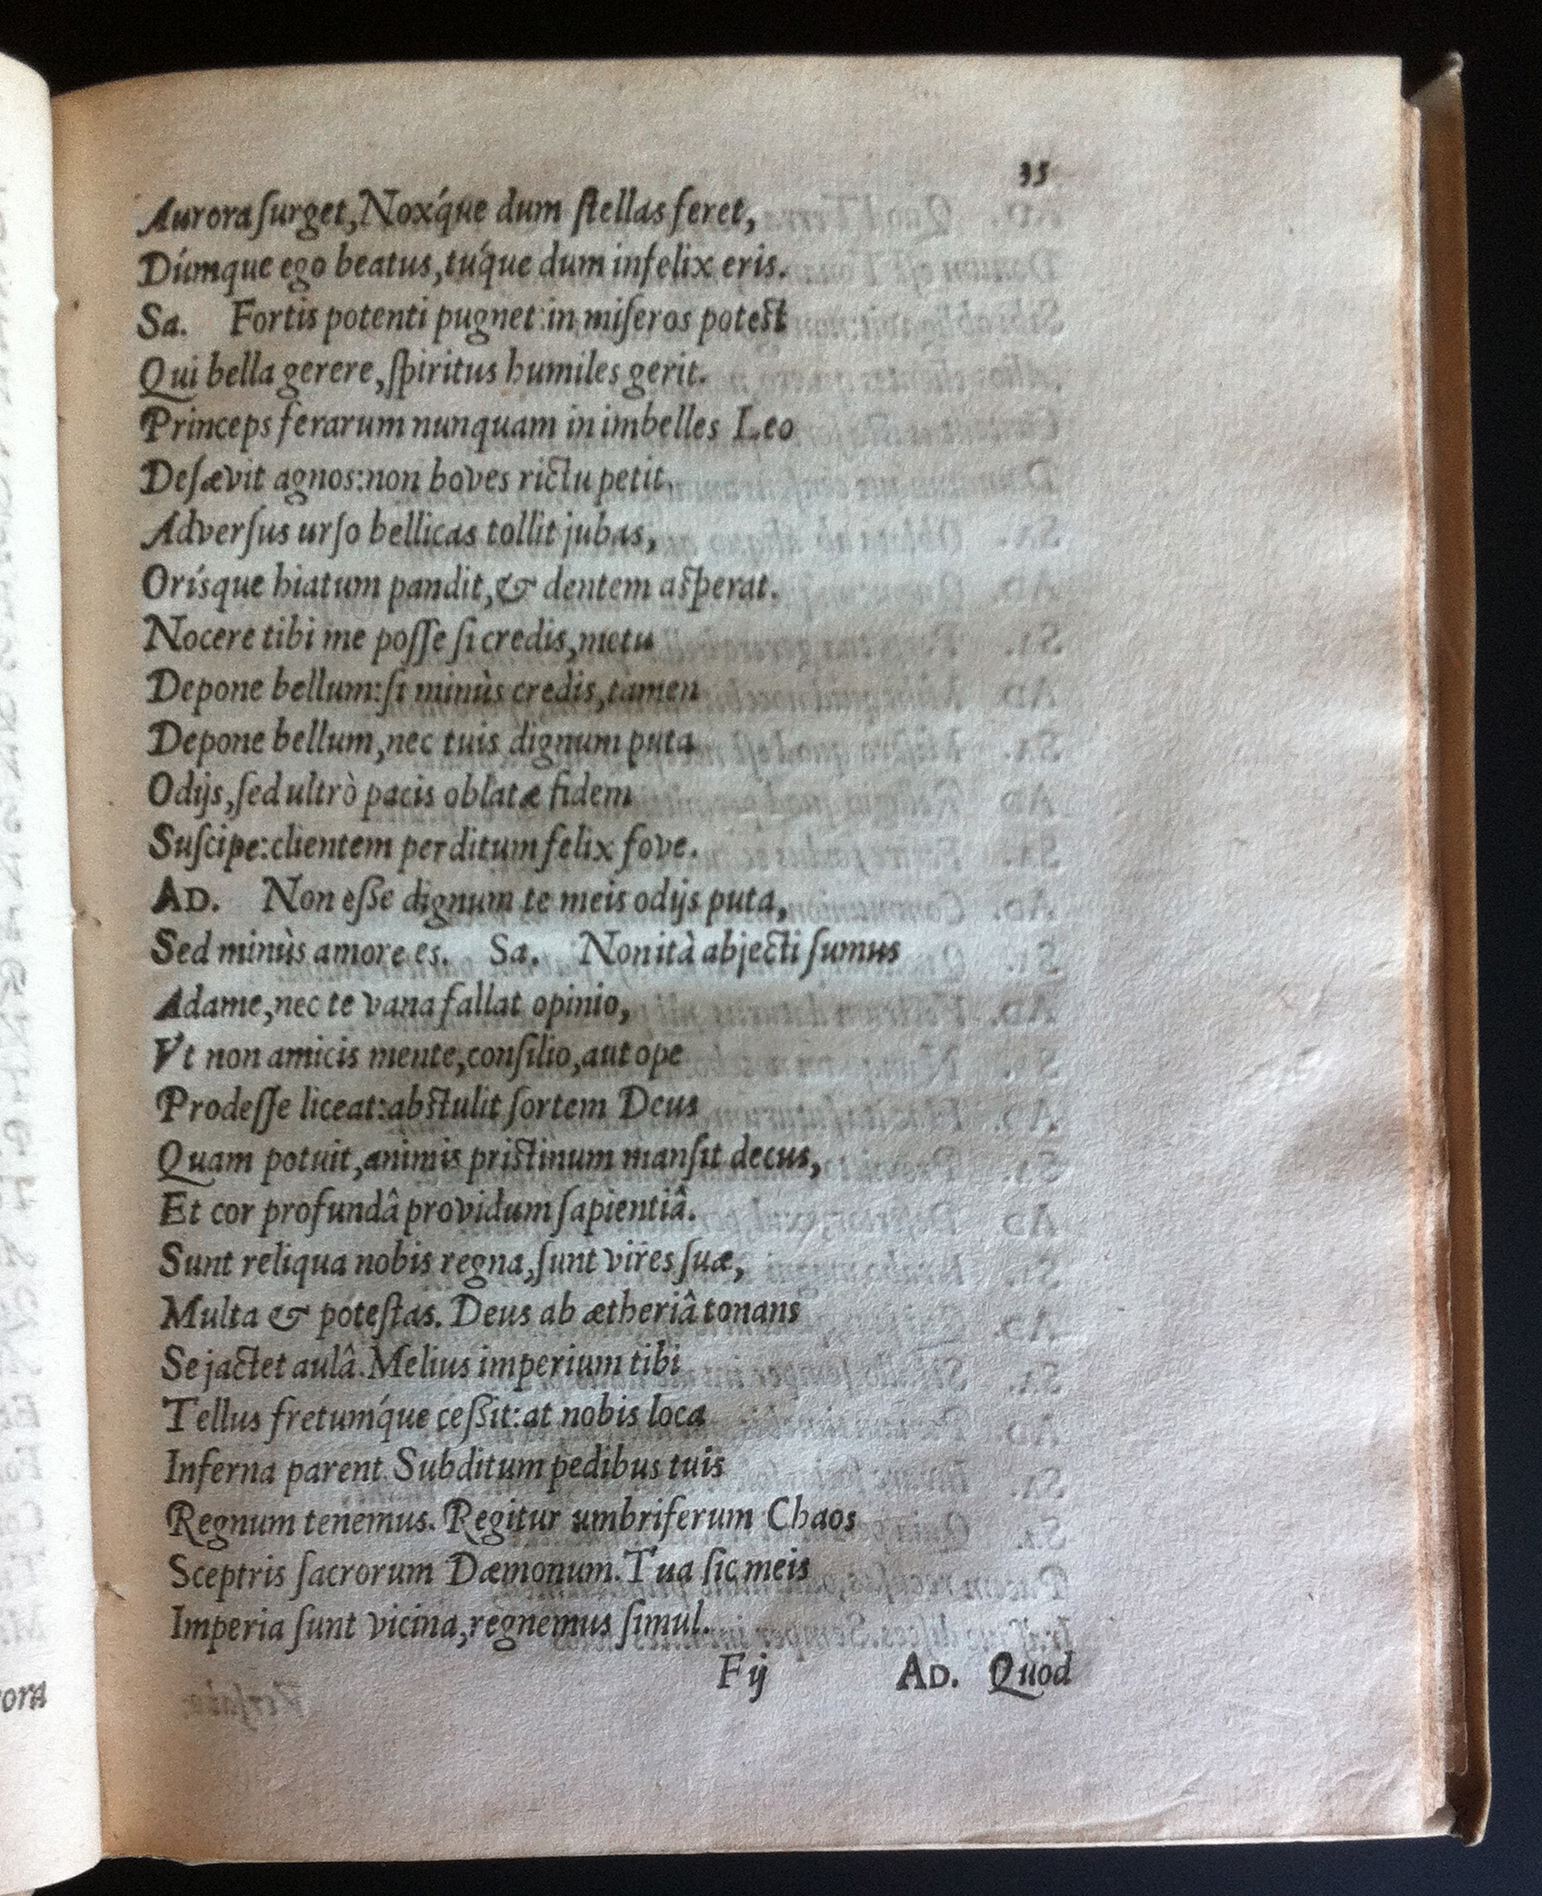 35
Aurora surget, Noxq́ue dum stellas feret,
Dúmque ego beatus, túq́ue dum infelix eris.
Sa. Fortis potenti pugnet: in miseros potest
Qui bella gerere, spiritus humiles gerit.
Princeps ferarum nunquam in imbelles Leo
Desævit agnos: non boves rictu petit,
Adversus urso bellicas tollit jubas,
Orísque hiatum pandit, & dentem asperat.
Nocere tibi me posse si credis, metu
Depone bellum: si minùs credis, tamen
Depone bellum, nec tuis dignum puta
Odijs, sed ultrò pacis oblatæ fidem
Suscipe: clientem perditum felix fove.
AD. Non esse dignum te meis odijs puta,
Sed minùs amore es. Sa. Non ità abjecti sumus
Adame, nec te vana fallat opinio,
Vt non amicis mente, consilio, aut ope
Prodesse liceat: abstulit sortem Deus
Quam potuit, animis pristinum mansit decus,
Et cor profundâ providum sapientiâ.
Sunt reliqua nobis regna, sunt vires suæ,
Multa & potestas. Deus ab ætheriâ tonans
Se jactet aulâ. Melius imperium tibi
Tellus fretumq́ue cessit: at nobis loca
Inferna parent. Subditum pedibus tuis
Regnum tenemus. Regitur umbriferum Chaos
Sceptris sacrorum Dæmonum. Tua sic meis
Imperia sunt vicina, regnemus simul.
F ij AD. Quod